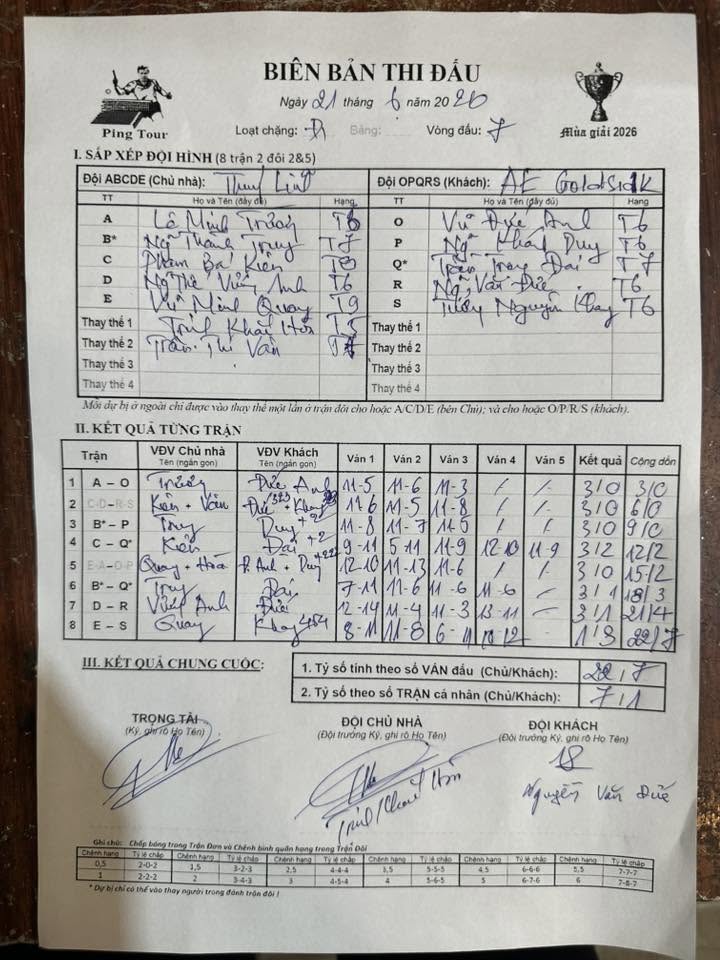 BIÊN BẢN THI ĐẤU
Ngày 21 tháng 6 năm 2026
Ping Tour
Loại chặng: Đ Bảng: Vòng đấu: 7
Mùa giải 2026
I. SẮP XẾP ĐỘI HÌNH (8 trận 2 đôi 2&5)
Đội ABCDE (Chủ nhà): Thuỳ Linh Đội OPQRS (Khách): AE Goldsick
TT Họ và Tên (đầy đủ) Hạng TT Họ và Tên (đầy đủ) Hạng
A Lê Minh Trường T6 O Vũ Đức Anh T6
B* Ngô Thành Truy T7 P Ng Khánh Duy T6
C Phạm Bá Kiên T8 Q* Trần Trọng Đại T7
D Ng Thế Việt Anh T6 R Ng Văn Đức T6
E Vũ Minh Quay T9 S Nguyễn Khay T6
Thay thế 1 Trịnh Khải Hòa T5 Thay thế 1
Thay thế 2 Trần Thị Vân Thay thế 2
Thay thế 3 Thay thế 3
Thay thế 4 Thay thế 4
Mỗi dự bị ở ngoài chỉ được vào thay thế một lần ở trận đôi cho hoặc A/C/D/E (bên Chủ); và cho hoặc O/P/R/S (khách).
II. KẾT QUẢ TỪNG TRẬN
Trận VĐV Chủ nhà Tên (ngắn gọn) VĐV Khách Tên (ngắn gọn) Ván 1 Ván 2 Ván 3 Ván 4 Ván 5 Kết quả Cộng dồn
1 A – O Trường Đức Anh 11-5 11-6 11-3 / / 3/0 3/0
2 C-D-R-S Kiên + Vân Đức + Khay 323 11-6 11-5 11-8 / / 3/0 6/0
3 B* – P Truy Duy +2 11-8 11-7 11-5 / / 3/0 9/0
4 C – Q* Kiên Đại +2 9-11 5-11 11-9 12-10 11-9 3/2 12/2
5 E-A-O-P Quay + Hòa Đ. Anh + Duy +222 12-10 11-13 11-6 / / 3/0 15/2
6 B* – Q* Truy Đại 7-11 11-6 11-6 11-6 – 3/1 18/3
7 D – R Việt Anh Đức 12-14 11-4 11-3 13-11 – 3/1 21/4
8 E – S Quay Khay 454 8-11 11-8 6-11 10-12 – 1/3 22/7
III. KẾT QUẢ CHUNG CUỘC:
1. Tỷ số tính theo số VÁN đấu (Chủ/Khách): 22/7
2. Tỷ số theo số TRẬN cá nhân (Chủ/Khách): 7/1
TRỌNG TÀI ĐỘI CHỦ NHÀ ĐỘI KHÁCH
(Ký, ghi rõ Họ Tên) (Đội trưởng Ký, ghi rõ Họ Tên) (Đội trưởng Ký, ghi rõ Họ Tên)
Trịnh Khải Hòa Nguyễn Văn Đức
Ghi chú: Chấp bóng trong Trận Đơn và Chênh bình quân hạng trong Trận Đôi
Chênh hạng Tỷ lệ chấp Chênh hạng Tỷ lệ chấp Chênh hạng Tỷ lệ chấp Chênh hạng Tỷ lệ chấp Chênh hạng Tỷ lệ chấp Chênh hạng Tỷ lệ chấp
0,5 2-0-2 1,5 3-2-3 2,5 4-4-4 3,5 5-5-5 4,5 6-6-6 5,5 7-7-7
1 2-2-2 2 3-4-3 3 4-5-4 4 5-6-5 5 6-7-6 6 7-8-7
* Dự bị chỉ có thể vào thay người trong đánh trận đôi !